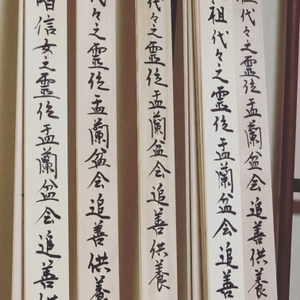 代々之靈位盂蘭盆会追善供養
祖代々之靈位盂蘭盆会追善供養
代々之靈位盂蘭盆会追善供養
代々之靈位盂蘭盆会追善供養
信女之靈位盂蘭盆会追善供